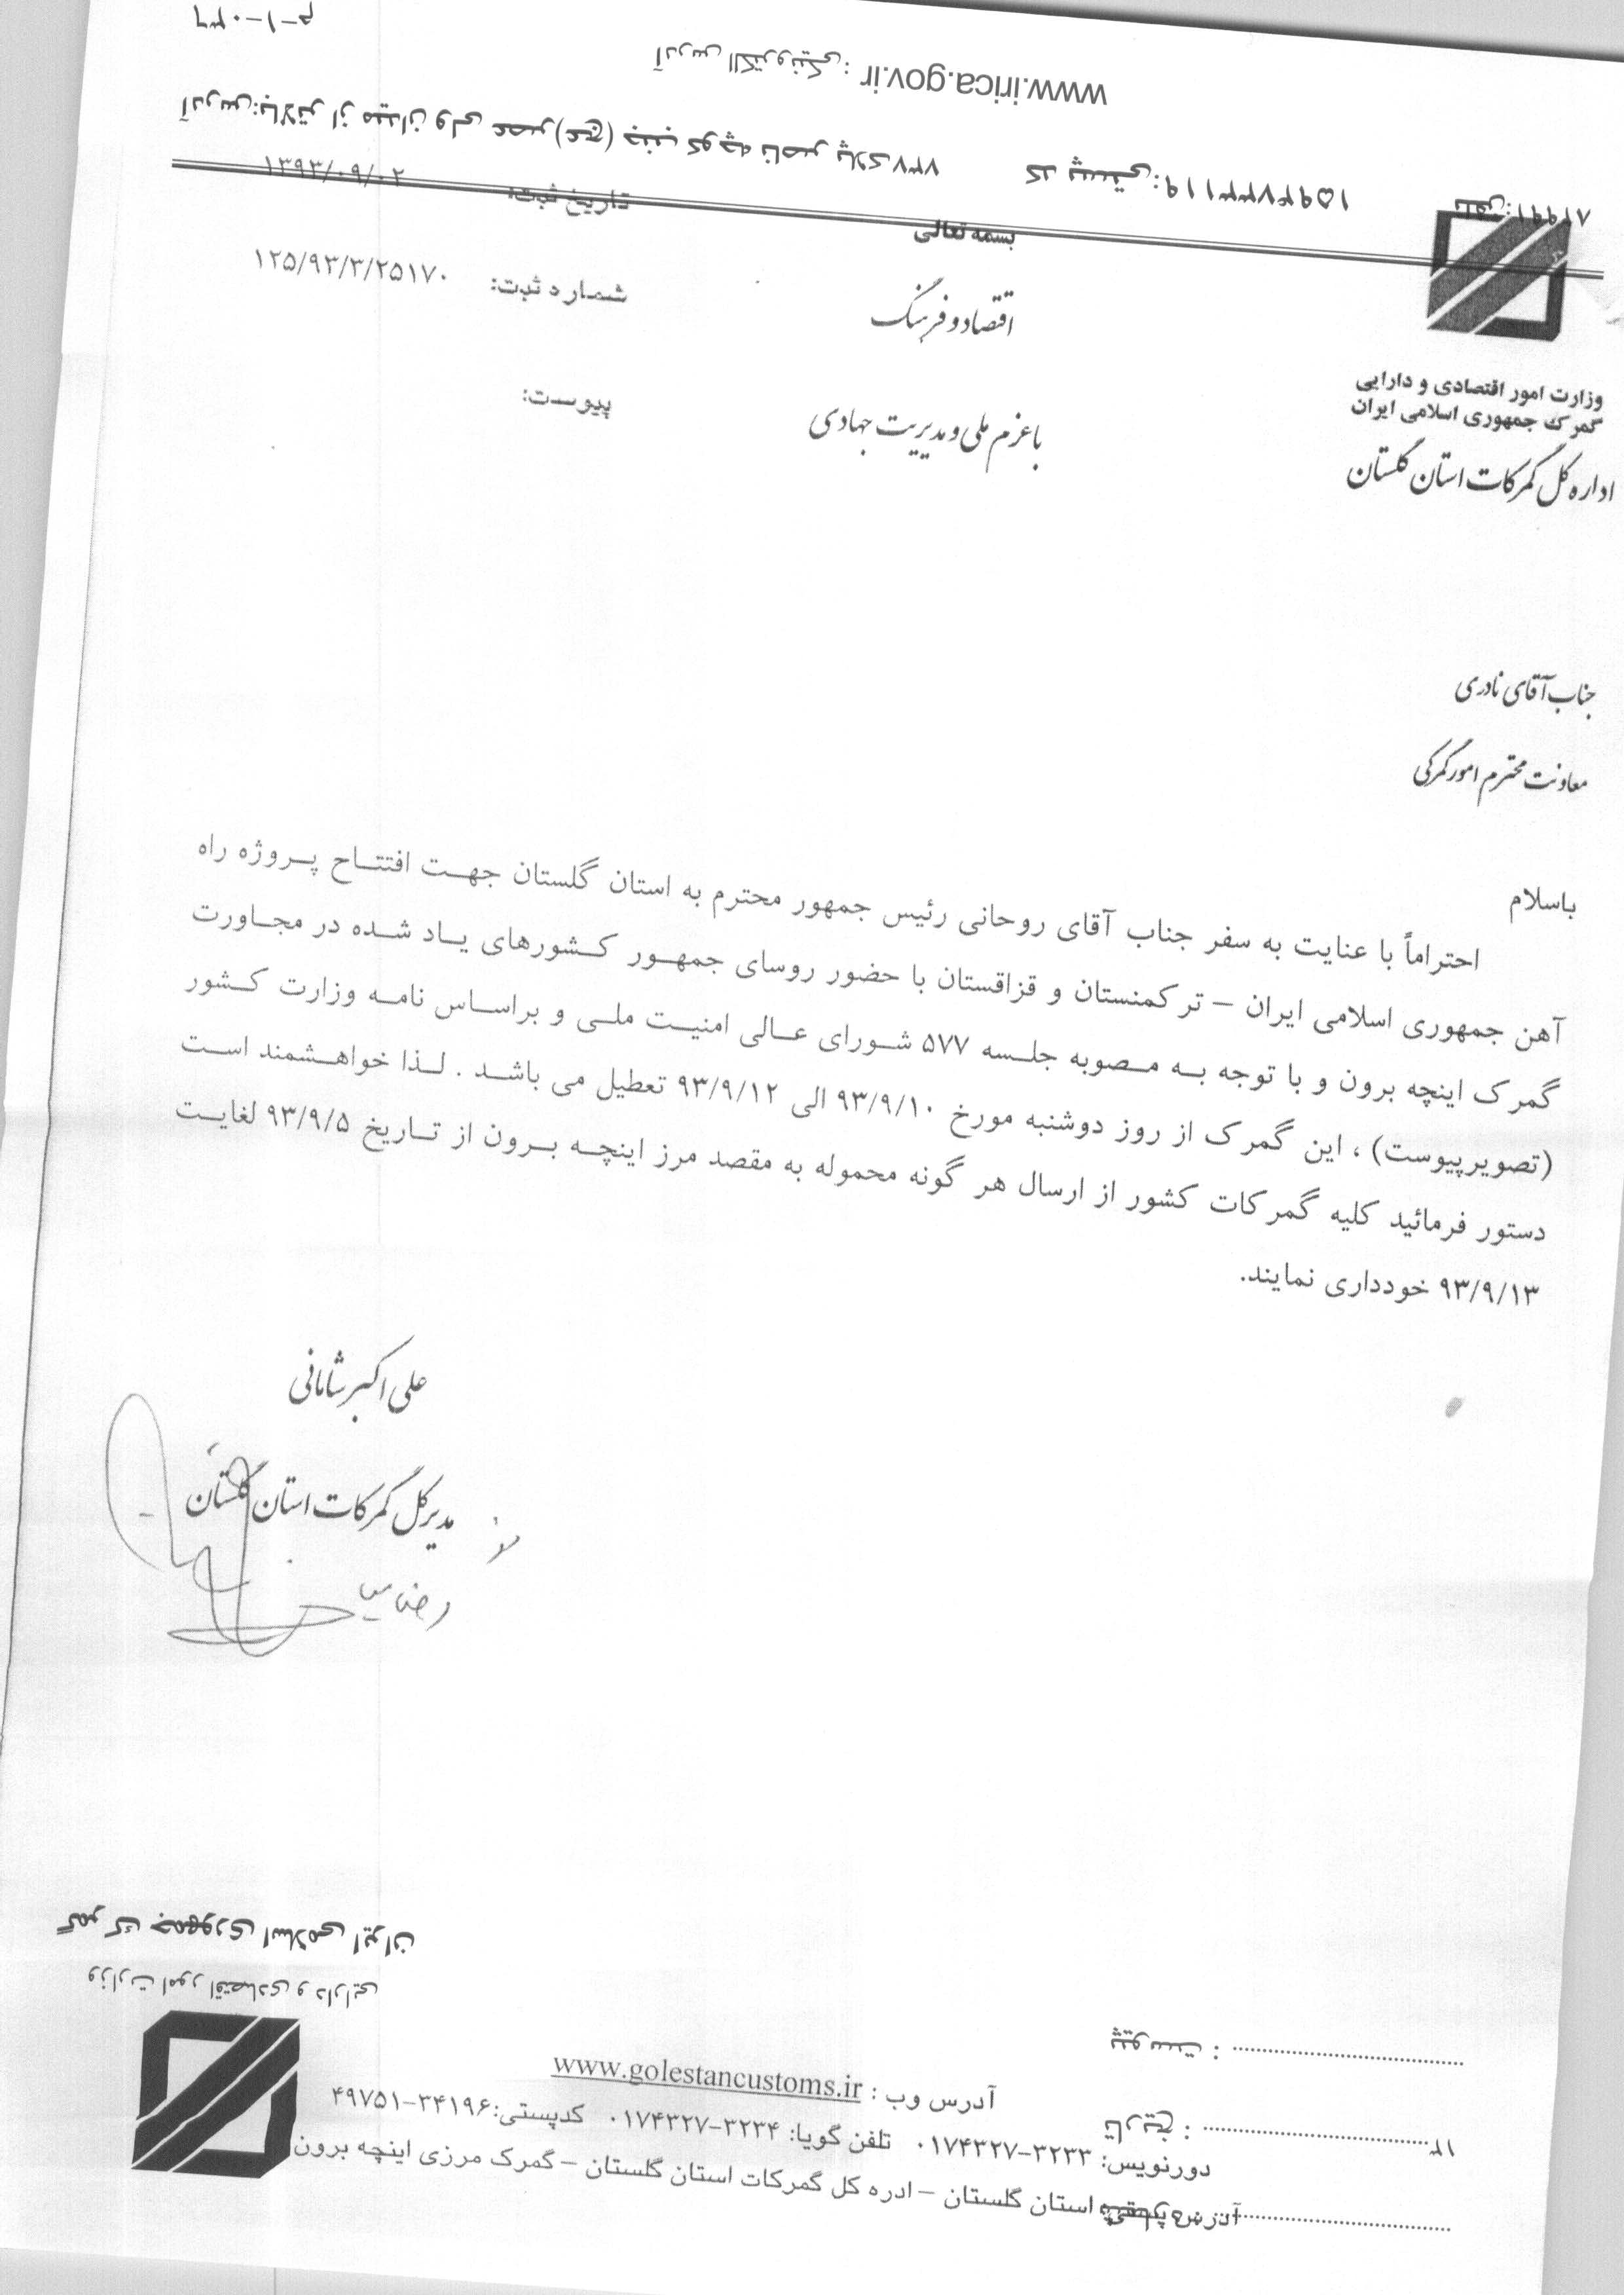 م-۱-۰۳۶
آدرس الکترونیکی : www.irica.gov.ir
آدرس:بالاتر از میدان ولی عصر(عج) جنب کوچه ناصر پلاک۷۳۷ کد پستی:۱۵۹۴۷۳۳۱۱۹ تلفن:۸۲۹۹۱
بسمه تعالی
تاریخ ثبت: ۱۳۹۳/۰۹/۰۲
اقتصاد و فرهنگ
شماره ثبت: ۱۲۵/۹۳/۳/۲۵۱۷۰
وزارت امور اقتصادی و دارایی
گمرک جمهوری اسلامی ایران
با عزم ملی و مدیریت جهادی
پیوست:
اداره کل گمرکات استان گلستان
جناب آقای نادری
معاونت محترم امور گمرکی
باسلام
احتراماً با عنایت به سفر جناب آقای روحانی رئیس جمهور محترم به استان گلستان جهت افتتاح پروژه راه
آهن جمهوری اسلامی ایران – ترکمنستان و قزاقستان با حضور روسای جمهور کشورهای یاد شده در مجاورت
گمرک اینچه برون و با توجه به مصوبه جلسه ۵۷۷ شورای عالی امنیت ملی و براساس نامه وزارت کشور
(تصویرپیوست) ، این گمرک از روز دوشنبه مورخ ۹۳/۹/۱۰ الی ۹۳/۹/۱۲ تعطیل می باشد . لذا خواهشمند است
دستور فرمائید کلیه گمرکات کشور از ارسال هر گونه محموله به مقصد مرز اینچه برون از تاریخ ۹۳/۹/۵ لغایت
۹۳/۹/۱۳ خودداری نمایند.
علی اکبر شامانی
مدیر کل گمرکات استان گلستان
گمرک جمهوری اسلامی ایران
وزارت امور اقتصادی و دارایی
پیوست :
آدرس وب : www.golestancustoms.ir
تاریخ : ۱۳
دورنویس: ۳۲۳۳-۰۱۷۴۳۲۷ تلفن گویا: ۳۲۳۴-۰۱۷۴۳۲۷ کدپستی:۳۴۱۹۶-۴۹۷۵۱
آدرس پستی: استان گلستان – ادره کل گمرکات استان گلستان – گمرک مرزی اینچه برون